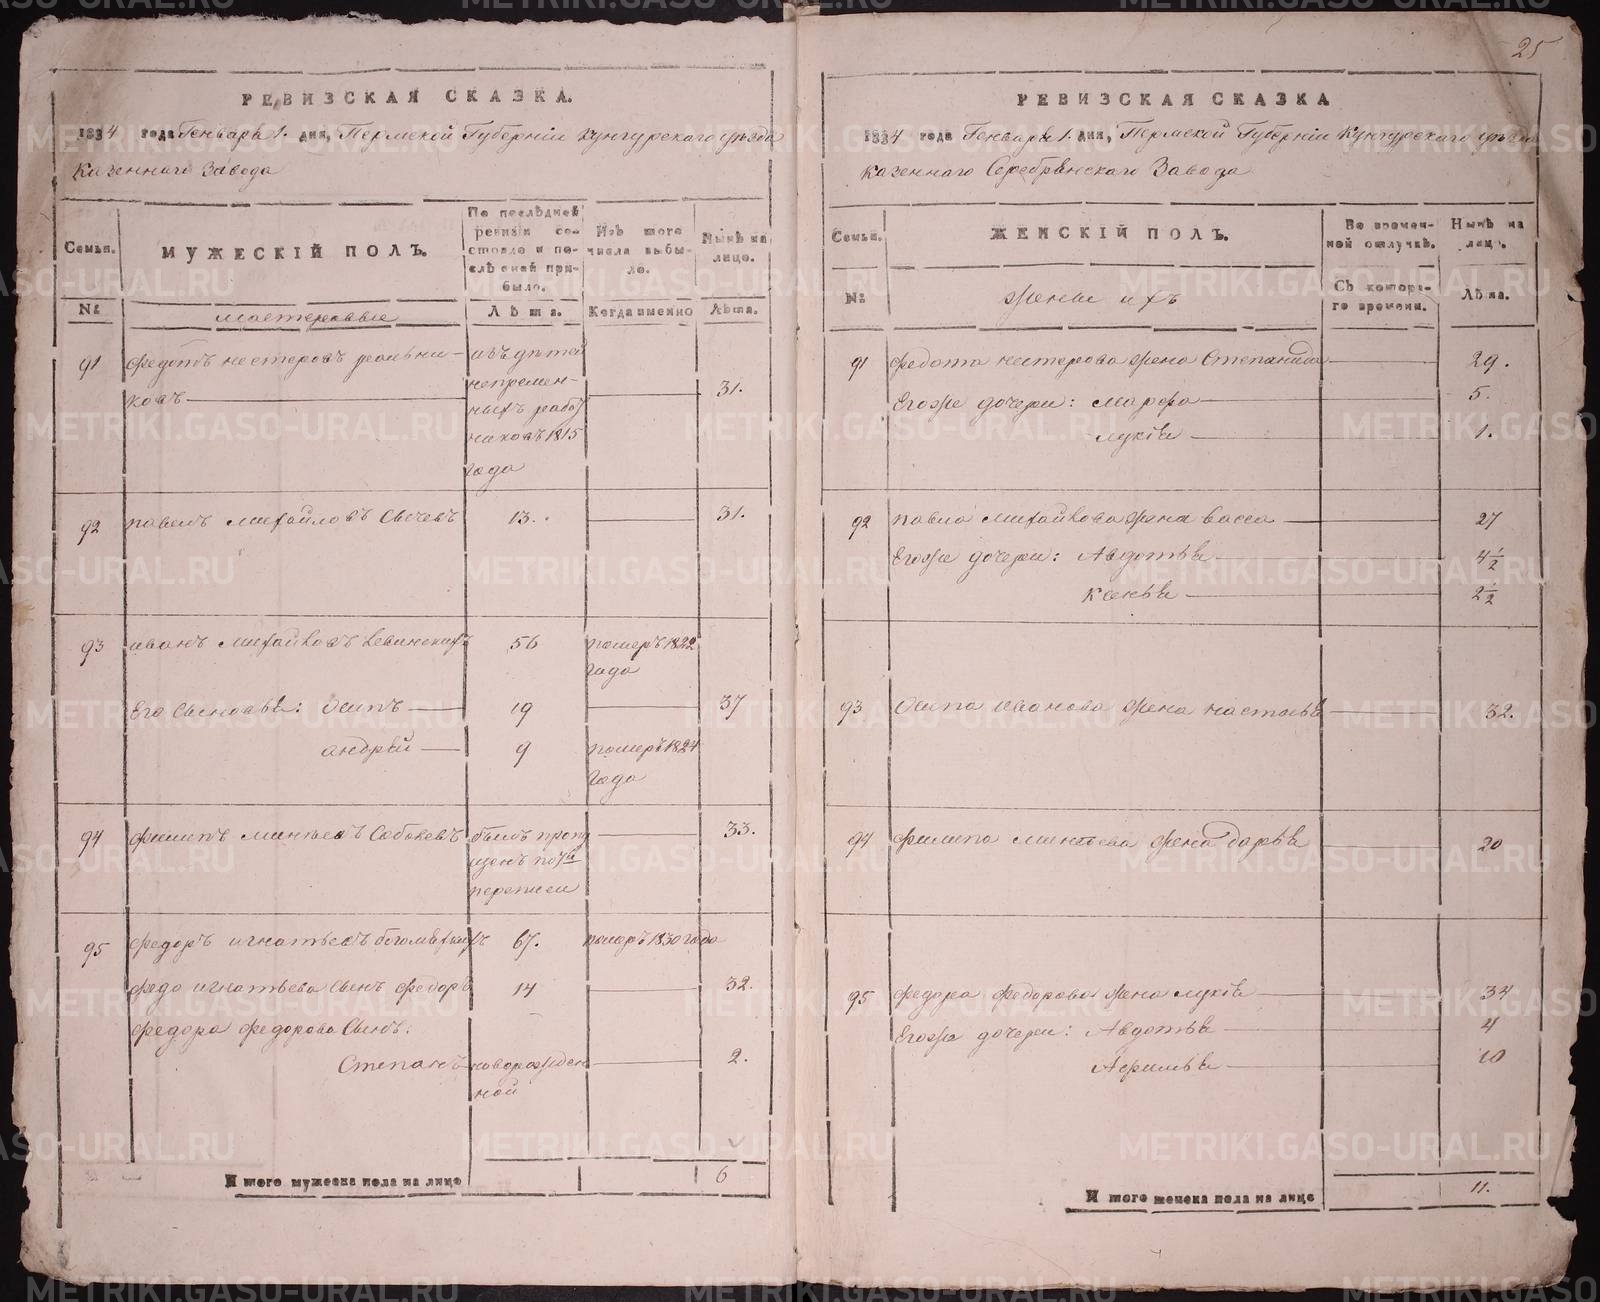 25
РЕВИЗСКАЯ СКАЗКА.
1834 года Генваря 1. дня, Пермской Губерніи Кунгурскаго уѣзда
Казеннаго Завода
Семьи.
МУЖЕСКІЙ ПОЛЪ.
По послѣдней ревизіи состояло и послѣ оной прибыло.
Изъ того числа выбыло.
Нынѣ на лицо.
№
мастеровые
Лѣта.
Когда именно
Лѣта.
91 Федотъ нестеровъ изъ дѣтей
ковъ непремен- 31.
ныхъ работ
никовъ 1815
года
92 павелъ михайловъ Сычевъ 13. 31.
93 иванъ михайловъ 56 померъ 1822
года
Его Сыновья: Осипъ 19 37
андрей 9 померъ 1824
года
94 филипъ минѣевъ былъ пропу 33.
щенъ по 7й
переписи
95 федоръ игнатьевъ 67. померъ 1830 года
федо игнатьева Сынъ федоръ 14 32.
федора федорова Сынъ:
Степанъ новорожден 2.
ной
И того мужеска пола на лицо 6
РЕВИЗСКАЯ СКАЗКА
1834 года Генваря 1. дня, Пермской Губерніи Кунгурскаго уѣзда
казеннаго Серебрянскаго Завода
Семьи.
ЖЕНСКІЙ ПОЛЪ.
Во временной отлучкѣ.
Нынѣ на лицо.
№
жены ихъ
Съ котораго времени.
Лѣта.
91 Федота нестерова жена Степанида 29.
Егоже дочери: марфа 5.
лукія 1.
92 павла михайлова жена васса 27
Егоже дочери: Авдотья 4 1/2
Ксенья 2 1/2
93 Осипа иванова жена настасья 32.
94 филипа минѣева жена дарья 20
95 федора федорова жена лукія 34
Егоже дочери: Авдотья 4
Афимья 10
И того женска пола на лицо 11.
METRIKI.GASO-URAL.RU